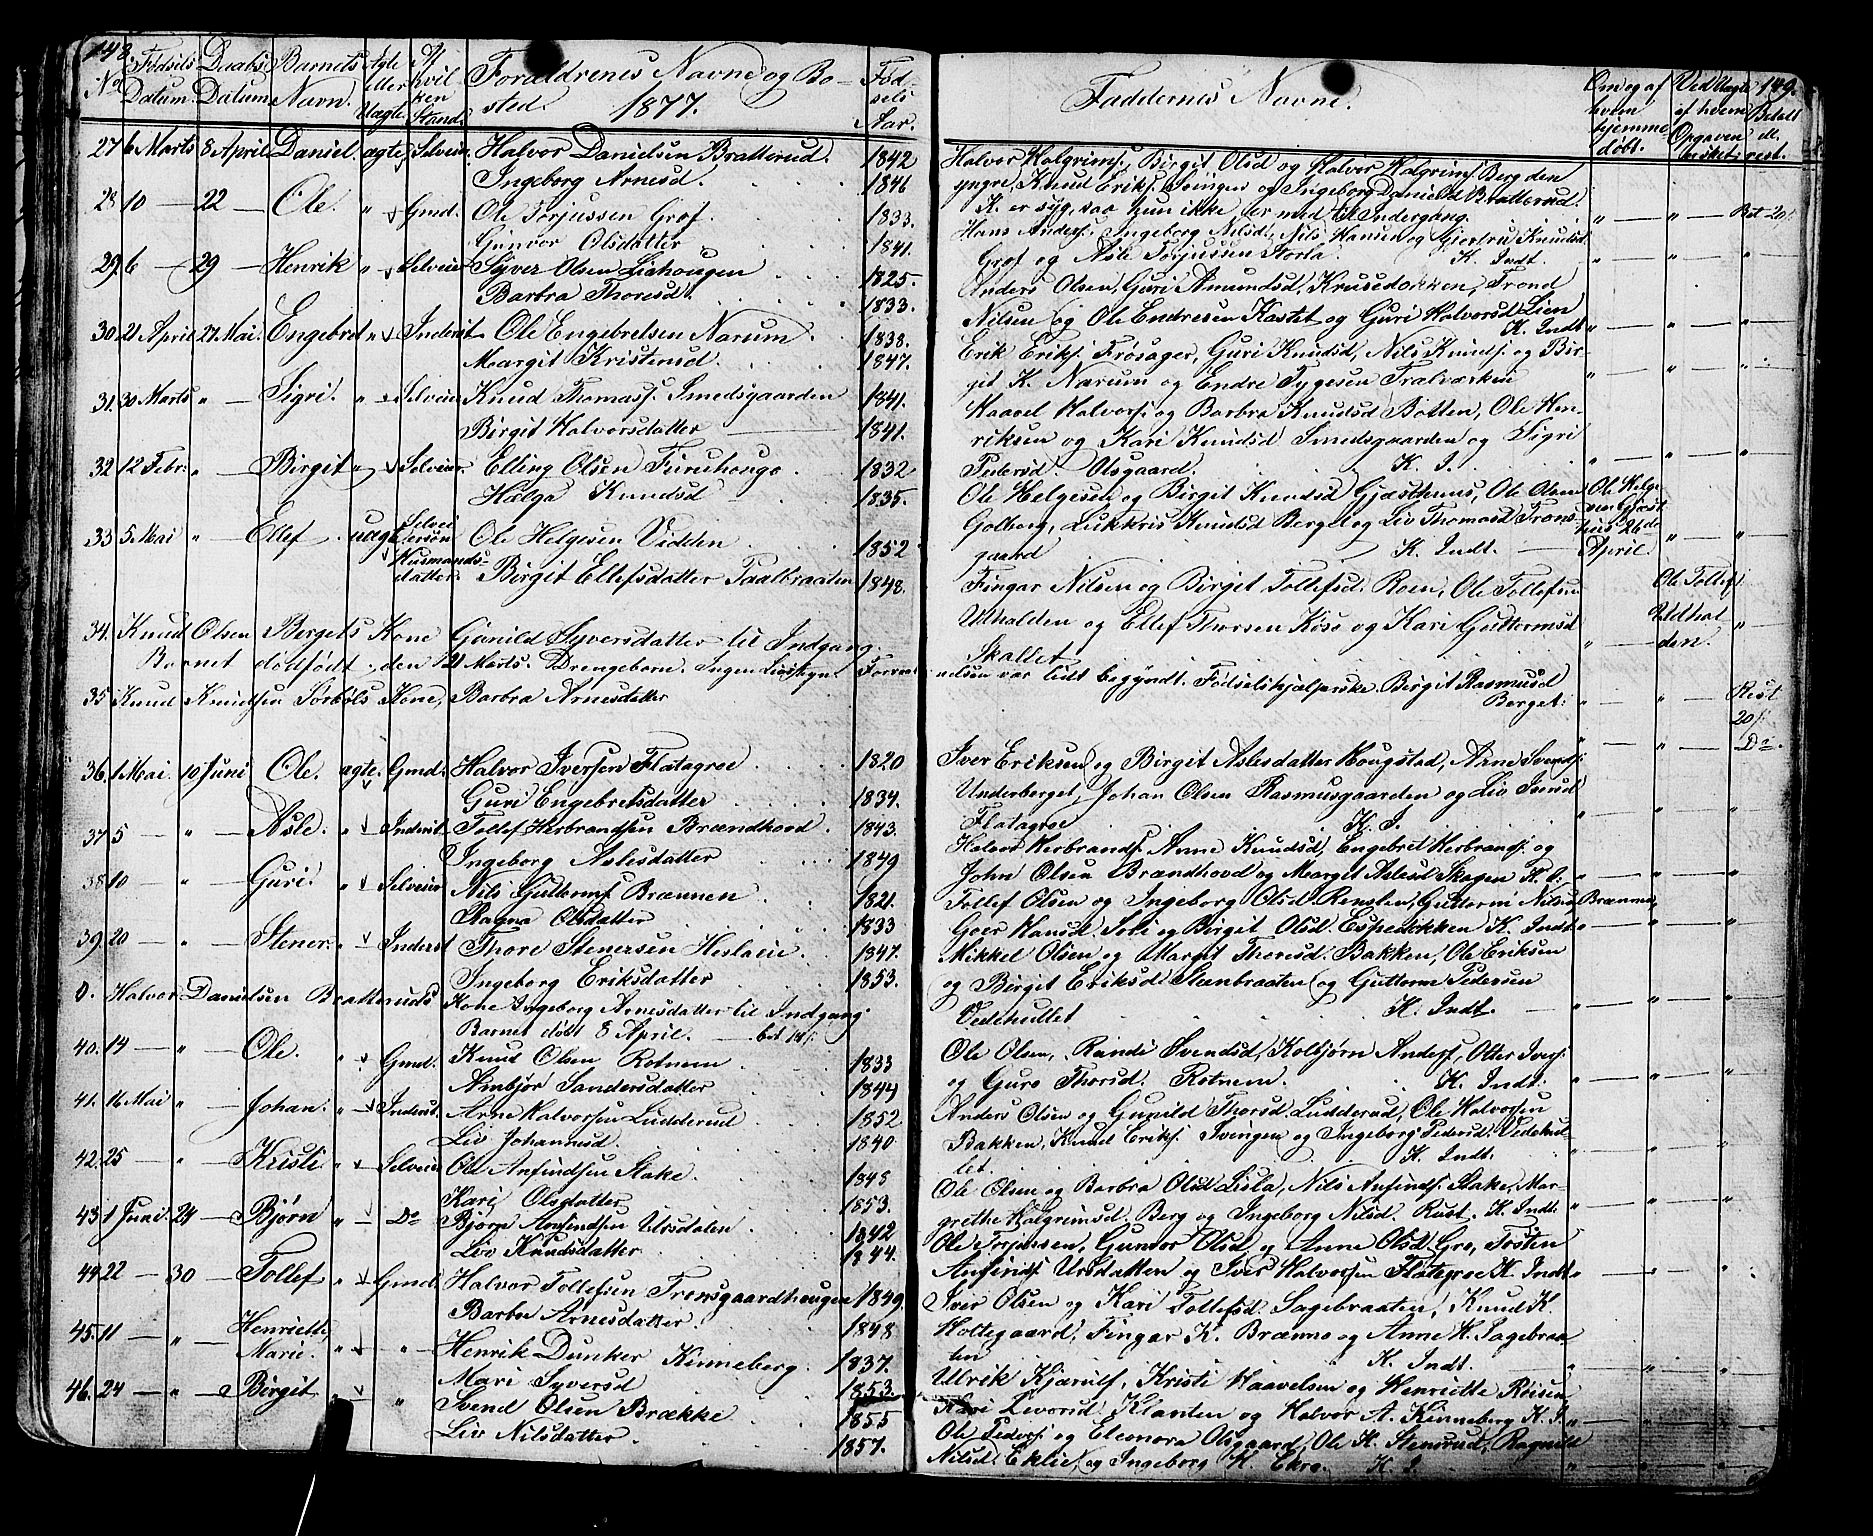 148.
No
Fødsels Datum.
Daabs Datum.
Barnets Navn.
Ægte eller Uægte.
Af hvil ken Stand.
Forældrenes Navne og Bo-
sted. 1877.
Fød-
sels
Aar.
27 6 Marts 8 April Daniel. ægte Selveier Halvor Danielsen Bratterud. 1842
Ingeborg Arnesd. 1846
28 10 — 22 — Ole. " Gmd. Ole Torjussen Grøf. 1833.
Gunvor Olsdatter 1841.
29 6 — 29 — Henrik " Selveier Syver Olsen Liahougen 1825.
Barbra Thoresd. 1833.
30 21 April 27 Mai. Engebret " Inderst Ole Engebretsen Narum. 1838.
Margit Kristensd. 1847.
31. 30 Marts " — Sigri. " Selveier Knud Thomass. Smedsgaarden 1841.
Birgit Halvorsdatter 1841.
32 12 Febr. " — Birgit " Selveier Elling Olsen Furuhougo. 1832
Hælga Knudsd 1835.
33 5 Mai " — Ellef. uægte Ole Helgesen Vidden 1852
Husmands-
datter. Birgit Ellefsdatter Paalbraaten 1848.
34. Knud Olsen Bergets Kone Gunild Syversdatter til Indgang.
Barnet dødfødt den 21 Marts. Drengebarn. Ingen Livstegn
35 Knud Knudsen Sørbøls Kone, Barbra Arnesdatter
36. 1 Mai. 10 Juni Ole. ægte. Gmd. Halvor Iversen Flatagroe 1820
Guri Engebretsdatter 1834.
37 5 — " — Asle. " Inderst Tollef Herbrandsen Brændhovd. 1843.
Ingeborg Aslesdatter 1849
38 10 — " — Guri. " Selveier Nils Guttormsf. Brænnen 1821.
Ragna Olsdatter 1833
39. 20 — " — Stener. " Inderst Thore Stenersen Heslaeie 1847.
Ingeborg Eriksdatter 1853.
0. Halvor Danielsen Bratteruds Kone Ingeborg Arnesdatter til Indgang.
Barnet døbt 8 April.
40. 14 — " — Ole. " Gmd. Knud Olsen Rotnem 1833
Ambjør Sandersdatter 1844
41. 16 Mai " — Johan. " Inderst. Arne Halvorsen Ludderud 1852
Liv Johannesd. 1840
42. 25 — " — Kristi " Selveier Ole Anfindsen Stake. 1848
Kari Olsdatter 1853.
43 1 Juni 24 — Bjørn " — Do Bjørn Anfindsen Ursdalen 1842
Liv Knudsdatter 1844.
44 22 — 30 — Tollef " Gmd. Halvor Tollefsen Trønsgaardhougen 1849.
Barbra Arnesdatter. 1848
45. 11 — " — Henriette
Marie. " — " — Henrik Dunker Kinneberg. 1837.
Mari Syversd 1853.
46. 24 — " — Birgit " " Svend Olsen Brække 1855
Liv Nilsdatter. 1857.
Faddernes Navne.
Om og af
hvem
hjemme-
døbt.
Ved Uægte
af hvem
Opgaven
149.
Betalt
el.
rest.
Halvor Halgrims. Birgit Olsd og Halvor Halgrims. Berg den
yngre, Knud Eriks. Svingen og Ingeborg Danielsd Bratterud.
K. er syg, saa hun ikke er med til Indergang. " — " — Bet 20
Hans Anders. Ingeborg Nilsd, Nils Hansen og Gjertru Knudsd
Grøf og Asle Torjussen Storla. K. Indt. " — " — "
Anders Olsen, Guri Amundsd, Krusedokken, Trond
Nilsen og Ole Endresen Kastet og Guri Halvorsd Lien
K. Indt " — " — "
Erik Eriks. Frøsager, Guri Knudsd, Nils Knuds. og Bir-
git K. Narum og Endre Tygesen Tralværken " — " — "
Haavel Halvors. og Barbra Knudsd Botten, Ole Hen-
riksen og Kari Knudsd Smedsgaarden og Sigri
Pedersd. Olsgaard. K. I. " — " — "
Ole Helgesen og Birgit Knudsd Gjæsthuus, Ole Olsen Ole Helge
Golberg, Lukkris Knudsd Berget og Liv Thomasd Trøns-
gaard K. Indt. — April " — "
Fingar Nilsen og Birgit Tollefsd. Roen, Ole Tollefsen Ole Tollef
Uthalden og Ellef Thorsen Køsø og Kari Guttormsd Udhal
Skallet " — den "
nelsen var lidt begyndt. Fødselshjælperske Birgit Rasmusd
Berget. " — " — Rest
20
" — " — Do.
Iver Eriksen og Birgit Aslesdatter Hougstad, Arne Svends.
Underberget, Johan Olsen Rasmusgaarden og Liv Iversd
Flatagroe K. I. " — " — "
Halvor Herbrands. Anne Knudsd, Engebret Herbrands. og
John Olsen Brændhovd og Marget Aslesd Skagen K. I. " — " — "
Tollef Olsen og Ingeborg Olsd Rensten, Guttorm Nilsen Brænnen,
Goer Hansd Seri og Birgit Olsd Espedokken K. Indt " — " — "
Mikkel Olsen og Margit Thoresd. Bakken, Ole Eriksen
og Birgit Eriksd Steenbraaten og Guttorm Pedersen
Vedehullet K. Indt. " — " — "
Ole Olsen, Randi Svendsd, Kolbjørn Anders., Otter Ivers.
og Guro Thorsd. Rotnem. K. Indt. " — " — "
Anders Olsen og Gunild Thorsd Ludderud, Ole Halvorsen
Bakken, Knud Eriks. Svingen og Ingeborg Pedersd. Vedehul-
let. K. Indt. " — " — "
Ole Olsen og Barbra Olsd Lisla, Nils Anfinds. Stake, Mar-
grethe Halgrimsd. Berg og Ingeborg Nilsd. Rust. K. Indt. " — " — "
Ole Torjussen, Gunvor Olsd og Anne Olsd Grø, Tosten
Anfinds. Ursdatten og Iver Halvorsen Flatagroe K. Indt. " — " — "
Iver Olsen og Kari Tollefsd. Sagebraaten, Knud K.
Hottegaard, Fingar K. Brænno og Anne H. Sagebraa
ten K. Indt. " — " — "
Ulrik Kjærulf, Kristi Haavelsen og Henriette Roisen
Kari Levorsd Klanten og Halvor A. Kinneberg K. I. " — " — "
Ole Peders. og Eleonora Olsgaard, Ole H. Stensrud, Ragnild
Nilsd. Eklie, og Ingeborg K. Ekro. K. I. " — " — "